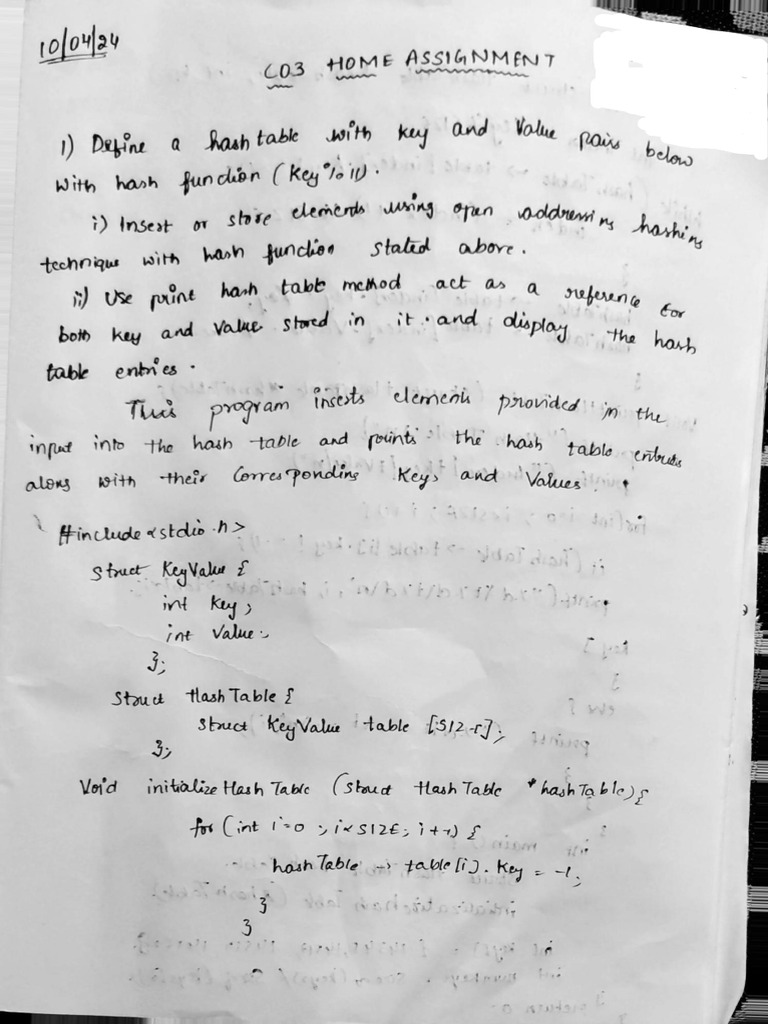 10/04/24
CO3 HOME ASSIGNMENT
1) Define a hash table with key and Value pairs below
With hash function (Key % 11).
i) Insert or store elements using open addressing hashing
technique with hash function stated above.
ii) Use print hash table method act as a reference for
both key and value stored in it. and display the hash
table entries.
This program inserts elements provided in the
input into the hash table and prints the hash table entries
along with their Corresponding Keys and Values.
#include <stdio.h>
Struct KeyValue {
int Key;
int Value;
};
Struct HashTable {
Struct KeyValue table [SIZE];
};
Void initialize Hash Table (Struct HashTable * hashTable) {
for (int i=0 ; i< SIZE; i++) {
hashTable -> table[i]. Key = -1;
}
}